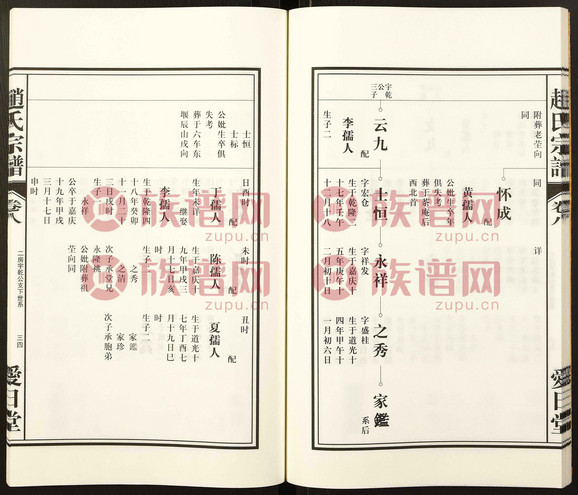 趙氏宗譜
卷八
愛日堂
附葬老茔向
同
同
详
怀成
配
黄孺人
公妣生卒年
俱失考
葬于茶庵后
西北首
字乾
三公子
云九
配
李孺人
生子二
士恒
字宏仓
生于乾隆三
十七年壬午
十二月十八
永祥
字祥发
生于嘉庆十
五年庚午十
二月初十日
之秀
字盛桂
生于道光十
四年甲午十
一月初六日
家鑑
系后
日酉时
配
丁孺人
生年未详
继娶
李孺人
生于乾隆四
十八年癸卯
十一月二十
二日戌时
生子二
永祥
公卒于嘉庆
十九年甲戌
三月十七日
申时
未时
配
陈孺人
生于嘉庆十
九年甲戌三
月十七日亥
时
生子二
之秀
之清
次子承堂兄
永隆桃
公妣附葬祖
茔向同
丑时
配
夏孺人
生于道光十
七年丁酉七
月十九日巳
时
生子二
家鑑
家珍
次子承胞弟
士恒
士标
公妣生卒俱
失考
葬于六车东
堰辰山戌向
趙氏宗譜
卷八
二房字乾公支下世系
三四
愛日堂
族谱网
zupu.cn
族谱网
zupu.cn
族谱网
zupu.cn
族谱网
zupu.cn